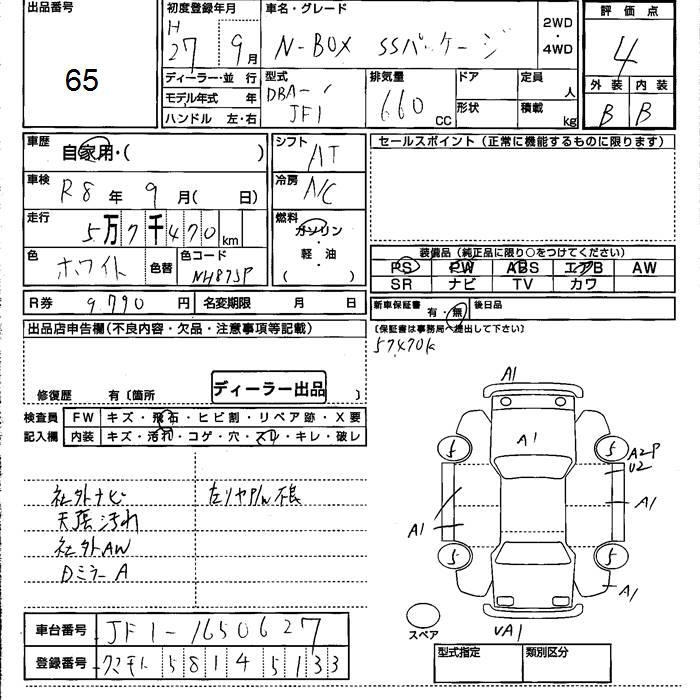 出品番号
65
初度登録年月
H27 9月
ディーラー・並行
モデル年式 年
ハンドル 左・右
車名・グレード
N-BOX SSパッケージ
2WD・4WD
型式
DBA-JF1
排気量
660 CC
ドア
形状
定員 人
積載 kg
評価点
4
外装 内装
B B
車歴
自家用・( )
車検
R8年 9月( 日)
走行
5万7千470km
色
ホワイト
色替
色コード
NH875P
シフト
AT
冷房
A/C
燃料
ガソリン・軽・油
( )
セールスポイント(正常に機能するものに限ります)
装備品(純正品に限り○をつけてください)
PS PW ABS エアB AW
SR ナビ TV カワ
R券 9,790円 名変期限 月 日
新車保証書 有・無 後日品
(保証書は事務局へ提出して下さい)
57470k
出品店申告欄(不良内容・欠品・注意事項等記載)
修復歴 有〔箇所 〕
ディーラー出品
検査員記入欄
FW キズ・飛石・ヒビ割・リペア跡・X要
内装 キズ・汚れ・コゲ・穴・スレ・キレ・破レ
社外ナビ
天張汚れ
社外AW
DミラーA
A1
A1
5
5
A2P
U2
A1
A1
5
5
A1
スペア
UA1
車台番号 JF1-1650627
登録番号 クマモト 5814 5133
型式指定 類別区分